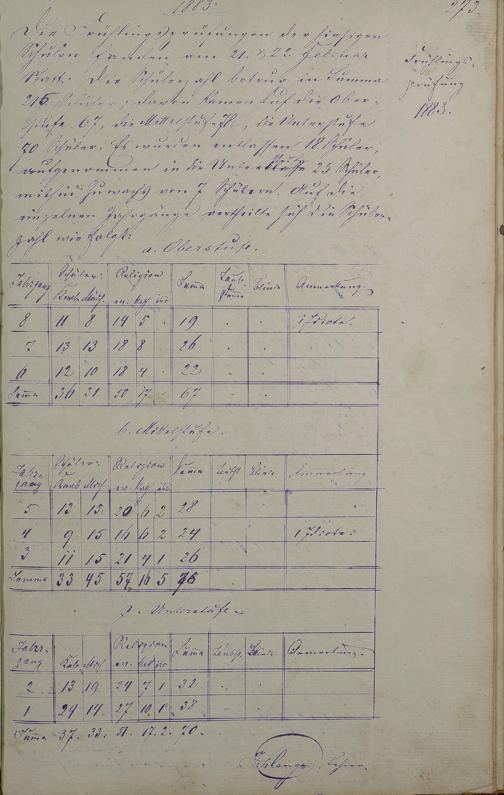 1883.
273
Die Frühlingsprüfungen der hiesigen
Schulen fanden am 21. & 22. Februar
statt. Die Schülerzahl betrug in Summa
215 Schüler; davon kamen auf die Ober-
stufe 67, die Mittelstufe, die Unterstufe
70 Schüler. Es wurden entlassen 18 Schüler,
aufgenommen in die Unterklasse 25 Schüler,
mithin Zuwachs von 7 Schülern. Auf die
einzelnen Jahrgänge vertheilte sich die Schüler-
zahl wie folgt:
Frühlings-
prüfung
1883.
a. Oberstufe.
Jahrgang Schüler: Religion Suma Taub- stumme Blinde Anmerkung
Knab. Mdch. ev. kath. isr.
8 11 8 14 5 . 19 . . 1 Idiote.
7 13 13 18 8 . 26 . .
6 12 10 18 4 . 22 . .
Suma 36 31 50 17 . 67 . .
b. Mittelstufe.
Jahr- gang Schüler: Religion Suma Taubst. Blinde Anmerkung
Knab. Mdch. ev. kath. isr.
5 13 15 20 6 2 28
4 9 15 16 6 2 24 1 Idiote.
3 11 15 21 4 1 26
Summa 33 45 57 16 5 78
Unterstufe.
Jahr- gang Knab. Mdch. Religion Suma Taubst. Blinde Anmerkung.
ev. kath. isr.
2 13 19 24 7 1 32
1 24 14 27 10 1 38
Suma 37. 33. 51. 17. 2. 70.
Lehrer.